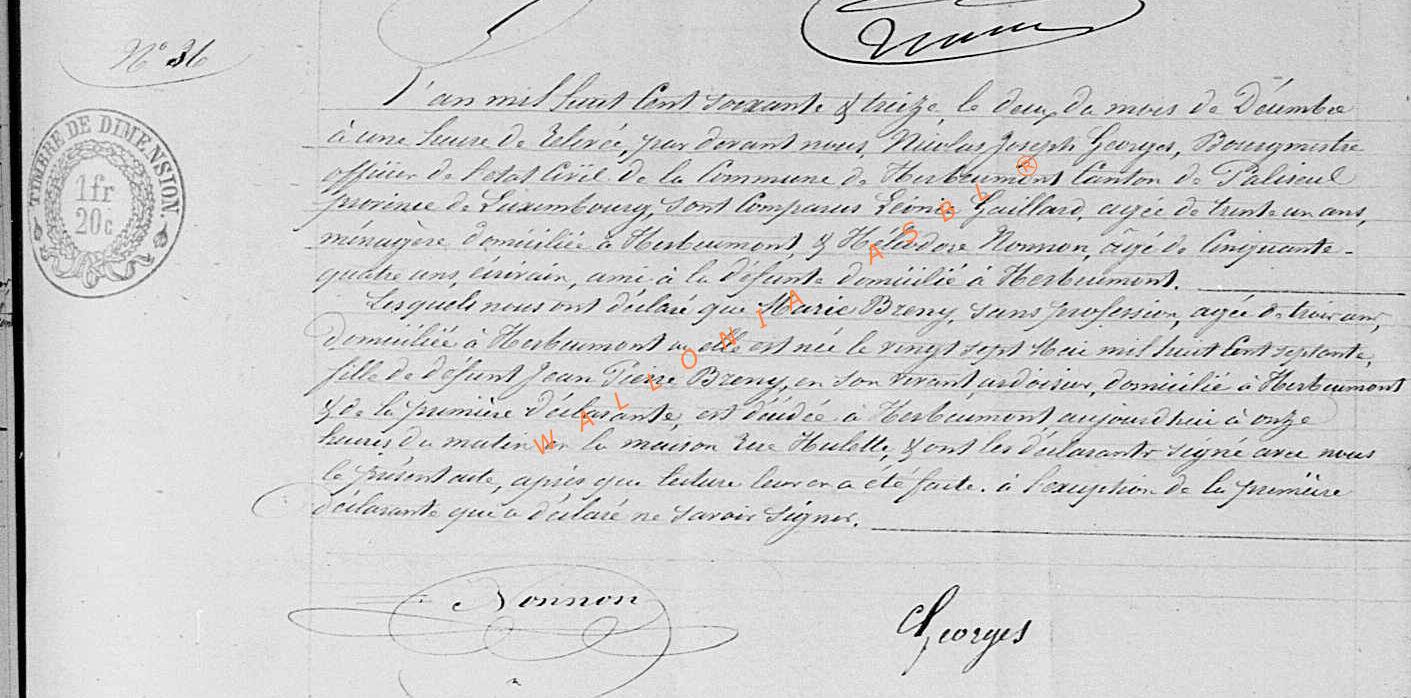 N° 36
TIMBRE DE DIMENSION.
1fr
20c
L'an mil huit Cent soixante & treize, le deux du mois de Décembre
à une heure de Relevée, par devant nous, Nicolas Joseph Georges, Bourgmestre
officier de l'état Civil de la Commune de Herbeumont Canton de Paliseul
province de Luxembourg, sont Comparus Léonie Gaillard, agée de trente un ans,
ménagère domiciliée à Herbeumont, & Héliodore Nonnon, âgé de Cinquante-
quatre ans, écrivain, ami à la défunte domicilié à Herbeumont.
Lesquels nous ont déclaré que Marie Breny, sans profession, agée de trois ans,
domiciliée à Herbeumont où elle est née le vingt sept Mai mil huit Cent septante,
fille de défunt Jean Pierre Breny, en son vivant, ardoisier, domicilié à Herbeumont
& de la première déclarante, est décédée à Herbeumont, aujourd'hui à onze
heures du matin en la maison Rue Hulette, & ont les déclarants signé avec nous
le présent acte, après que lecture leur en a été faite. à l'exception de la première
déclarante que a déclaré ne savoir signer.
Nonnon
Georges
WALLONIA ASBL ®